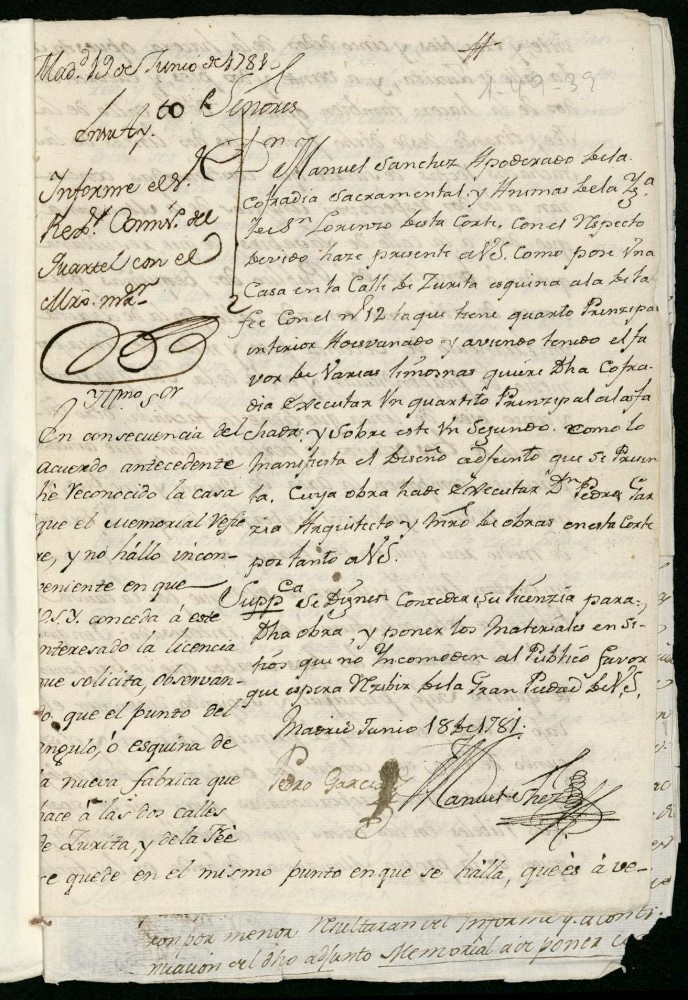 Mad.d 19 de Junio de 1781.
1-49-39
Señores
en Ay.to
Informe el S.r
Rex.or Comis.o del
Quartel con el
Mro. m.or
D.n Manuel Sanchez Apoderado de la
Cofradia Sacramental y Animas de la Yg.a
de S.n Lorenzo desta Corte, con el Respecto
devido haze presente a V.S. Como posee Vna
Casa en la Calle de Zurita esquina a la de la
fee Con el n.o 12 la que tiene quarto Prinzipal
interior Hoesvanado y aviendo tenido el fa
vor de Varias limosnas quiere Dha Cofra-
dia Executar Vn quartito Prinzipal a la fa
chada; y Sobre este Vn Segundo. como lo
manifiesta el Diseño adjunto que se Presen
ta. Cuya obra ha de Executar D.n Pedro Gar
zia Arquitecto y Mro de obras en esta Corte
por tanto a V.S.
Supp.ca Se Dignen Conceder su licenzia para
Dha obra, y poner los Materiales en Si-
tios que no Yncomoden al Publico favor
que espera Rezibir de la Gran Piedad de V.S.
Madrid Junio 18 de 1781.
Pedro Garcia
Manuel Shez
Yllmo S.or
En consecuencia del
acuerdo antecedente
hè reconocido la casa
que el memorial refie
re, y nó hallo incon-
veniente en que
V.S.Y. conceda á este
interesado la licencia
que solicita, observan-
do, que el punto del
angulo, ó esquina de
la nueva fabrica que
hace á las dos calles
de Zurita, y de la Feè
se quede en el mismo punto en que se hálla, que ès á ve-
ron por menor Resultaran del Informe y a conti-
nuacion del dho adjunto Memorial a de poner